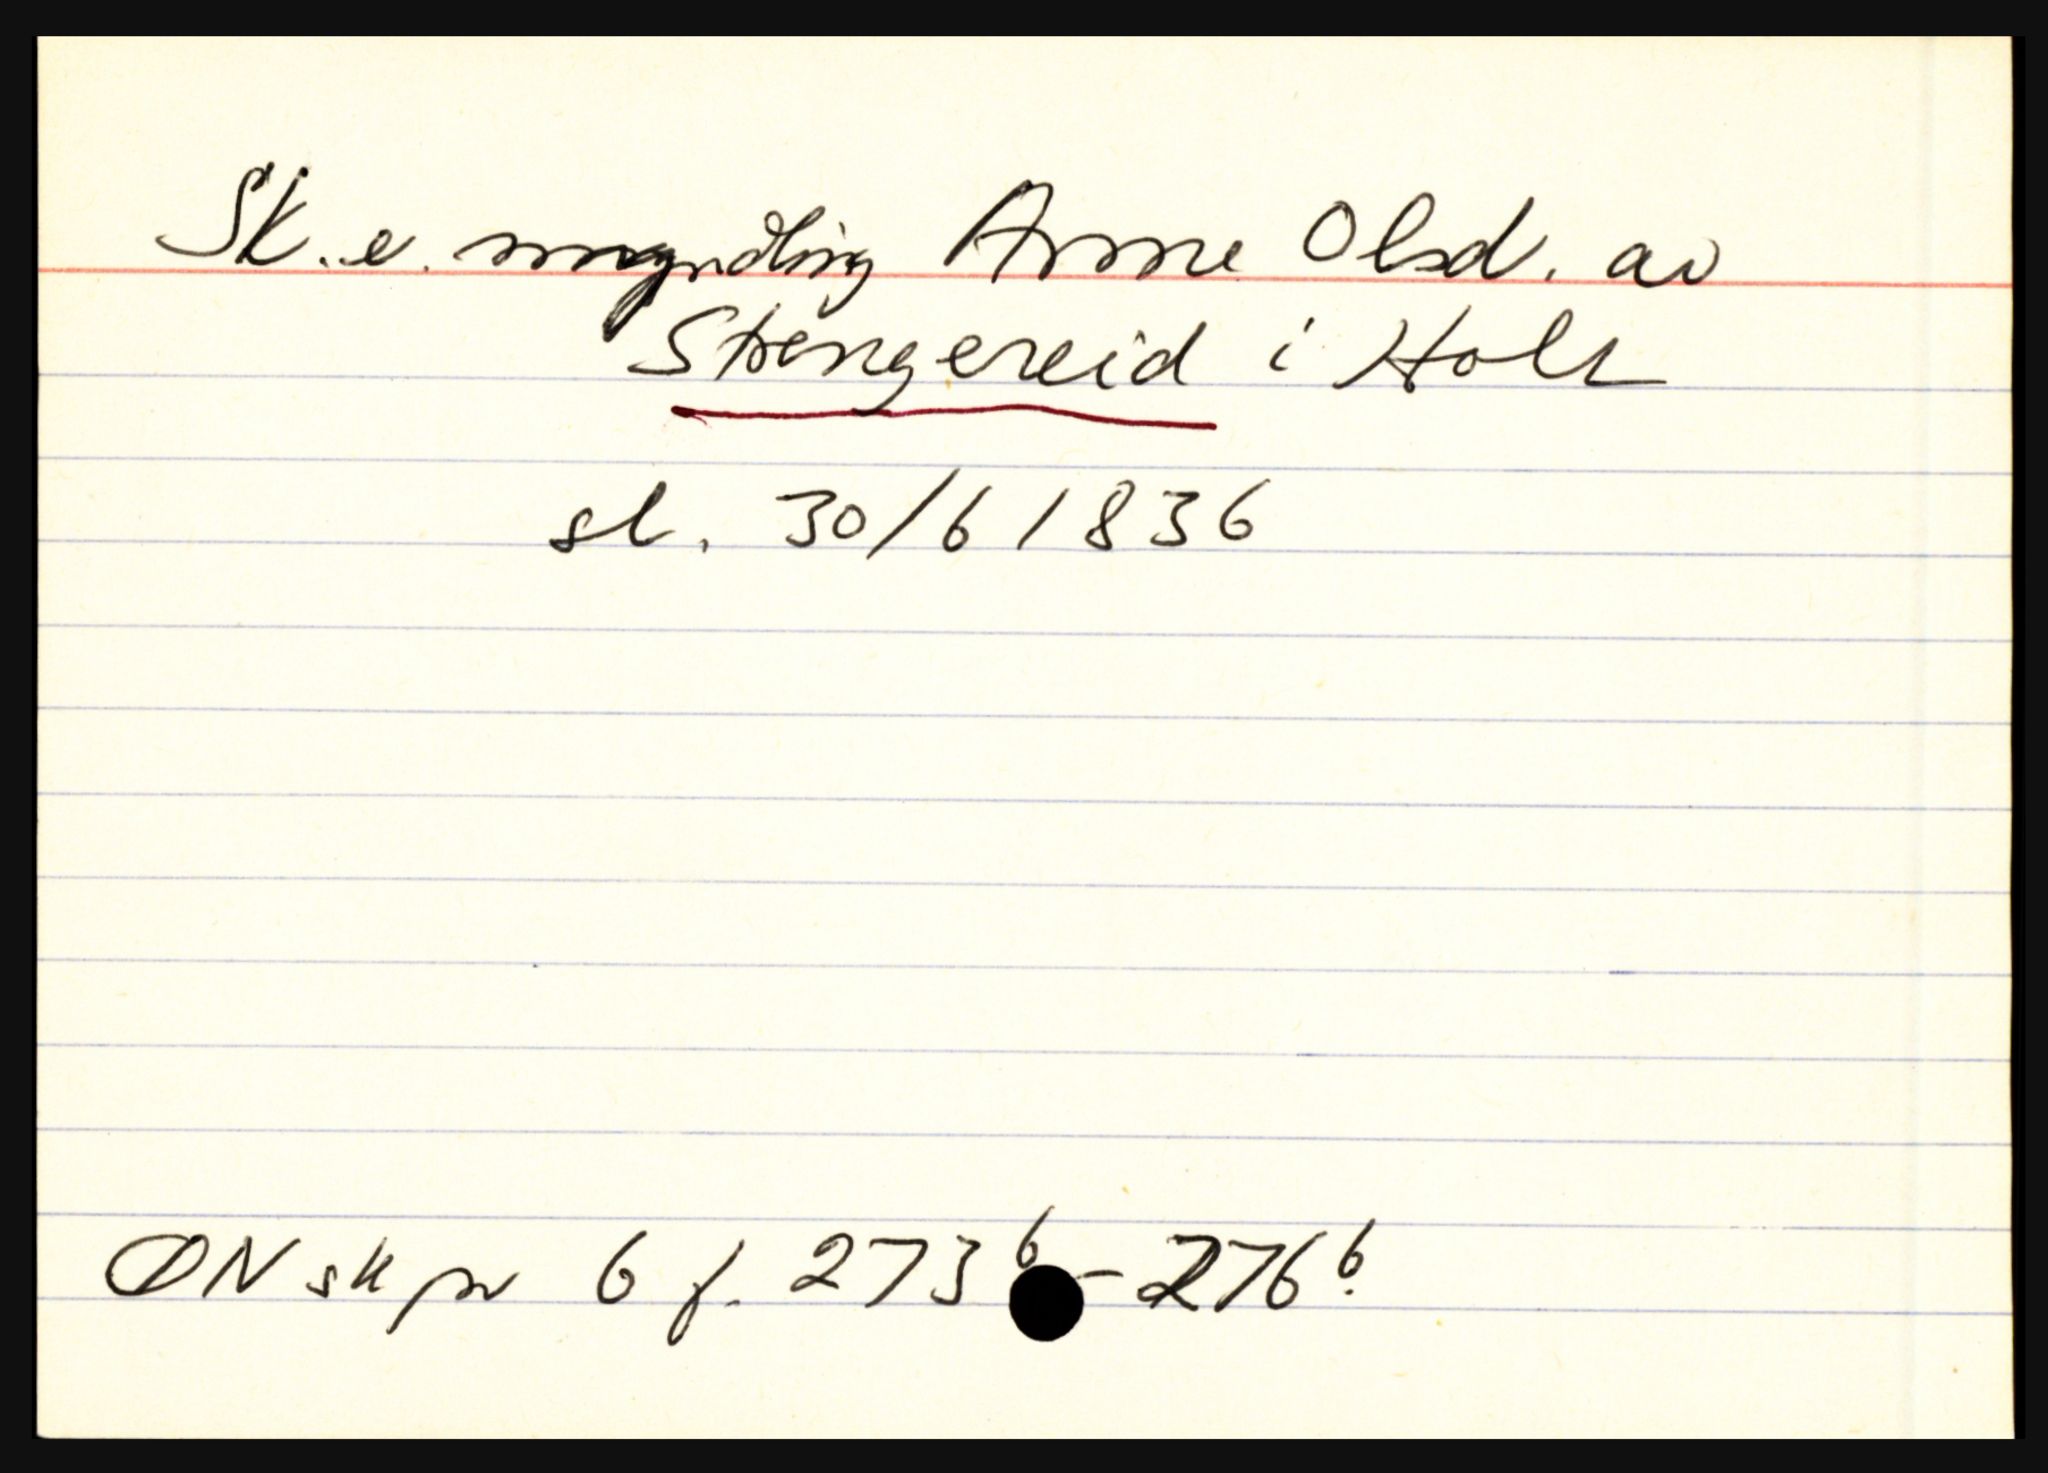 Sk. e. myndling Anne Olsd. av
Strengereid i Holt
sl. 30/6 1836
ØN sk pr 6 f. 273 b - 276 b.